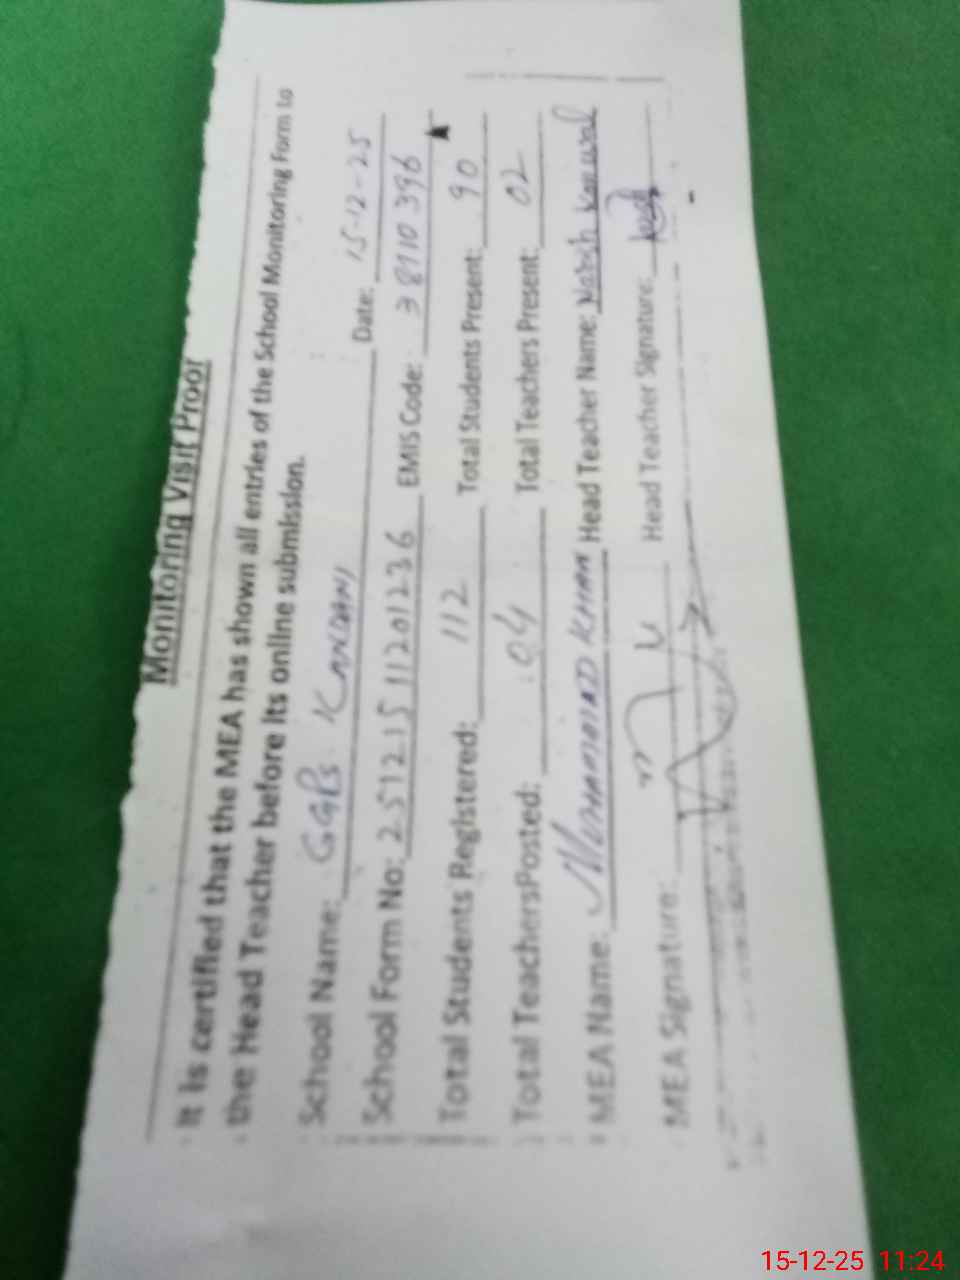 Monitoring Visit Proof
It is certified that the MEA has shown all entries of the School Monitoring Form to
the Head Teacher before its online submission.
School Name: GGPS Date: 15-12-25
School Form No: 25121511201236 EMIS Code: 38110396
Total Students Registered: 112 Total Students Present: 90
Total Teachers Posted: 04 Total Teachers Present: 02
MEA Name: MUHAMMAD KHAN Head Teacher Name: Kanwal
MEA Signature: Head Teacher Signature:
15-12-25 11:24